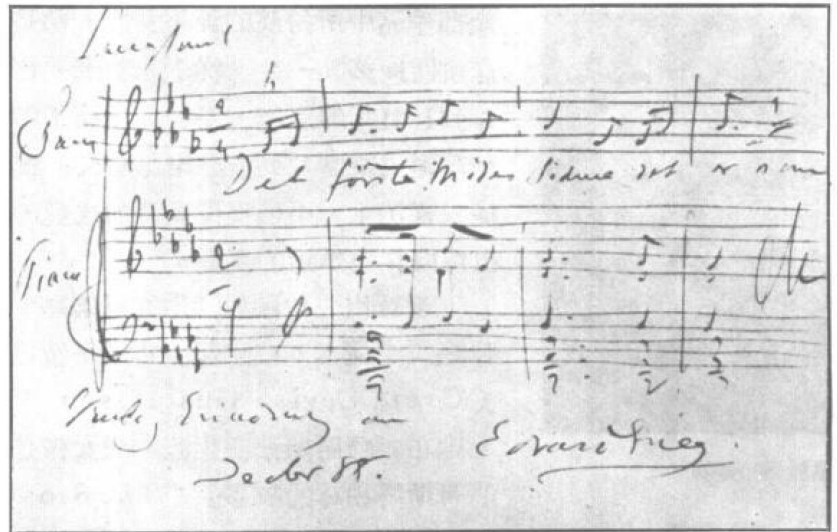 Langsamt
Sang
Det förste Mödes Sødme det er som
Piano
Erinnerung an
Decbr 88
Edvard Grieg.